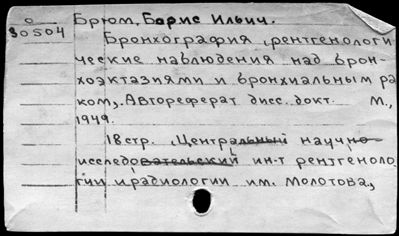 о Брюм, Борис Ильич.
30504
Бронхография, рентгенологи
ческие наблюдения над брон-
хоэктазиями и бронхиальным ра
ком. Автореферат дисс. докт. М.,
1949.
18стр. Центральный научно
исследовательский ин-т рентгеноло
гии и радиологии им. Молотова.,